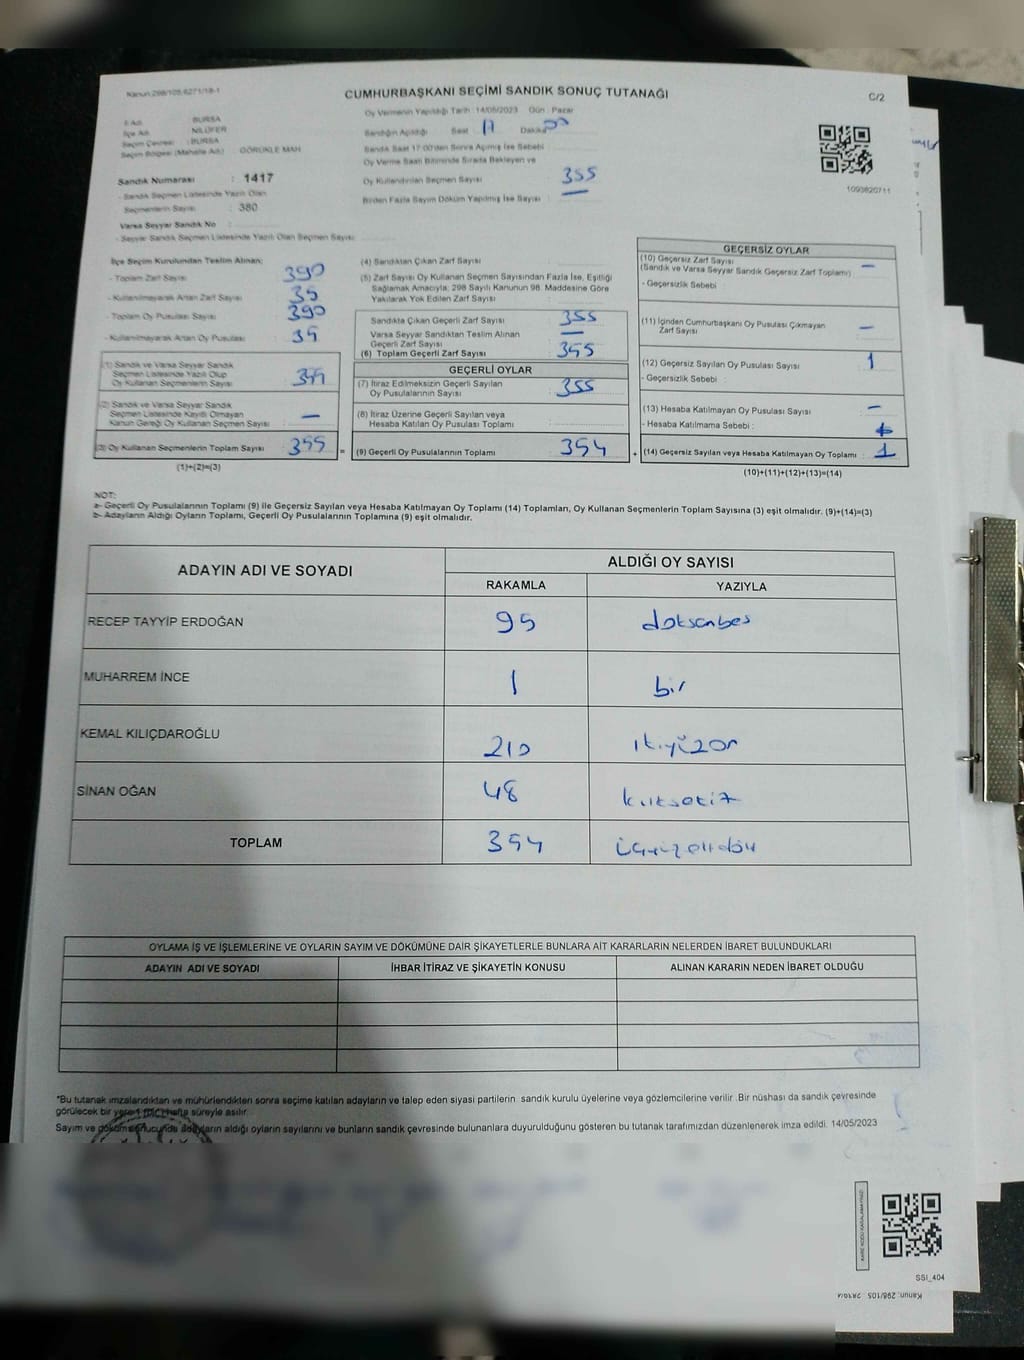 Kanun:298/105,6271/18-1
CUMHURBAŞKANI SEÇİMİ SANDIK SONUÇ TUTANAĞI
C/2
İl Adı : BURSA
İlçe Adı : NİLÜFER
Seçim Çevresi : BURSA
Seçim Bölgesi (Mahalle Adı) : GÖRÜKLE MAH
Sandık Numarası : 1417
- Sandık Seçmen Listesinde Yazılı Olan
Seçmenlerin Sayısı : 380
Varsa Seyyar Sandık No :
- Seyyar Sandık Seçmen Listesinde Yazılı Olan Seçmen Sayısı
Oy Vermenin Yapıldığı Tarih : 14/05/2023 Gün : Pazar
Sandığın Açıldığı Saat : 17 Dakika 00
Sandık Saat 17:00'den Sonra Açılmış İse Sebebi
Oy Verme Saati Bitiminde Sırada Bekleyen ve
Oy Kullandırılan Seçmen Sayısı : 355
Birden Fazla Sayım Döküm Yapılmış İse Sayısı : —
1093820711
İlçe Seçim Kurulundan Teslim Alınan;
- Toplam Zarf Sayısı : 390
- Kullanılmayarak Artan Zarf Sayısı : 35
- Toplam Oy Pusulası Sayısı : 390
- Kullanılmayarak Artan Oy Pusulası : 35
(1) Sandık ve Varsa Seyyar Sandık
Seçmen Listesinde Yazılı Olup
Oy Kullanan Seçmenlerin Sayısı : 355
(2) Sandık ve Varsa Seyyar Sandık
Seçmen Listesinde Kayıtlı Olmayan
Kanun Gereği Oy Kullanan Seçmen Sayısı : —
(3) Oy Kullanan Seçmenlerin Toplam Sayısı : 355 =
(1)+(2)=(3)
(4) Sandıktan Çıkan Zarf Sayısı :
(5) Zarf Sayısı Oy Kullanan Seçmen Sayısından Fazla İse, Eşitliği
Sağlamak Amacıyla; 298 Sayılı Kanunun 98. Maddesine Göre
Yakılarak Yok Edilen Zarf Sayısı :
Sandıkta Çıkan Geçerli Zarf Sayısı : 355
Varsa Seyyar Sandıktan Teslim Alınan
Geçerli Zarf Sayısı : —
(6) Toplam Geçerli Zarf Sayısı : 355
GEÇERLİ OYLAR
(7) İtiraz Edilmeksizin Geçerli Sayılan
Oy Pusulalarının Sayısı : 355
(8) İtiraz Üzerine Geçerli Sayılan veya
Hesaba Katılan Oy Pusulası Toplamı :
(9) Geçerli Oy Pusulalarının Toplamı : 354 +
GEÇERSİZ OYLAR
(10) Geçersiz Zarf Sayısı : —
(Sandık ve Varsa Seyyar Sandık Geçersiz Zarf Toplamı)
- Geçersizlik Sebebi
(11) İçinden Cumhurbaşkanı Oy Pusulası Çıkmayan
Zarf Sayısı : —
(12) Geçersiz Sayılan Oy Pusulası Sayısı : 1
- Geçersizlik Sebebi :
(13) Hesaba Katılmayan Oy Pusulası Sayısı : —
- Hesaba Katılmama Sebebi :
(14) Geçersiz Sayılan veya Hesaba Katılmayan Oy Toplamı : 1
(10)+(11)+(12)+(13)=(14)
NOT:
a- Geçerli Oy Pusulalarının Toplamı (9) ile Geçersiz Sayılan veya Hesaba Katılmayan Oy Toplamı (14) Toplamları, Oy Kullanan Seçmenlerin Toplam Sayısına (3) eşit olmalıdır. (9)+(14)=(3)
b- Adayların Aldığı Oyların Toplamı, Geçerli Oy Pusulalarının Toplamına (9) eşit olmalıdır.
ADAYIN ADI VE SOYADI
ALDIĞI OY SAYISI
RAKAMLA YAZIYLA
RECEP TAYYİP ERDOĞAN 95 doksanbeş
MUHARREM İNCE 1 bir
KEMAL KILIÇDAROĞLU 210 ikiyüzon
SİNAN OĞAN 48 kırksekiz
TOPLAM 354 üçyüzellidört
OYLAMA İŞ VE İŞLEMLERİNE VE OYLARIN SAYIM VE DÖKÜMÜNE DAİR ŞİKAYETLERLE BUNLARA AİT KARARLARIN NELERDEN İBARET BULUNDUKLARI
ADAYIN ADI VE SOYADI İHBAR İTİRAZ VE ŞİKAYETİN KONUSU ALINAN KARARIN NEDEN İBARET OLDUĞU
*Bu tutanak imzalandıktan ve mühürlendikten sonra seçime katılan adayların ve talep eden siyasi partilerin sandık kurulu üyelerine veya gözlemcilerine verilir .Bir nüshası da sandık çevresinde
görülecek bir yere 1 (bir) hafta süreyle asılır.
Sayım ve döküm sonucunda adayların aldığı oyların sayılarını ve bunların sandık çevresinde bulunanlara duyurulduğunu gösteren bu tutanak tarafımızdan düzenlenerek imza edildi. 14/05/2023
SSI_404
Kanun: 298/105